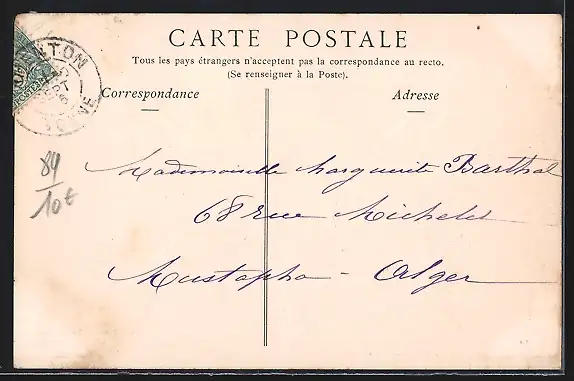 CARTE POSTALE
Tous les pays étrangers n'acceptent pas la correspondance au recto.
(Se renseigner à la Poste).
Correspondance
Adresse
84
10€
Mademoiselle Marguerite Barthal
68 rue Michelet
Mustapha - Alger